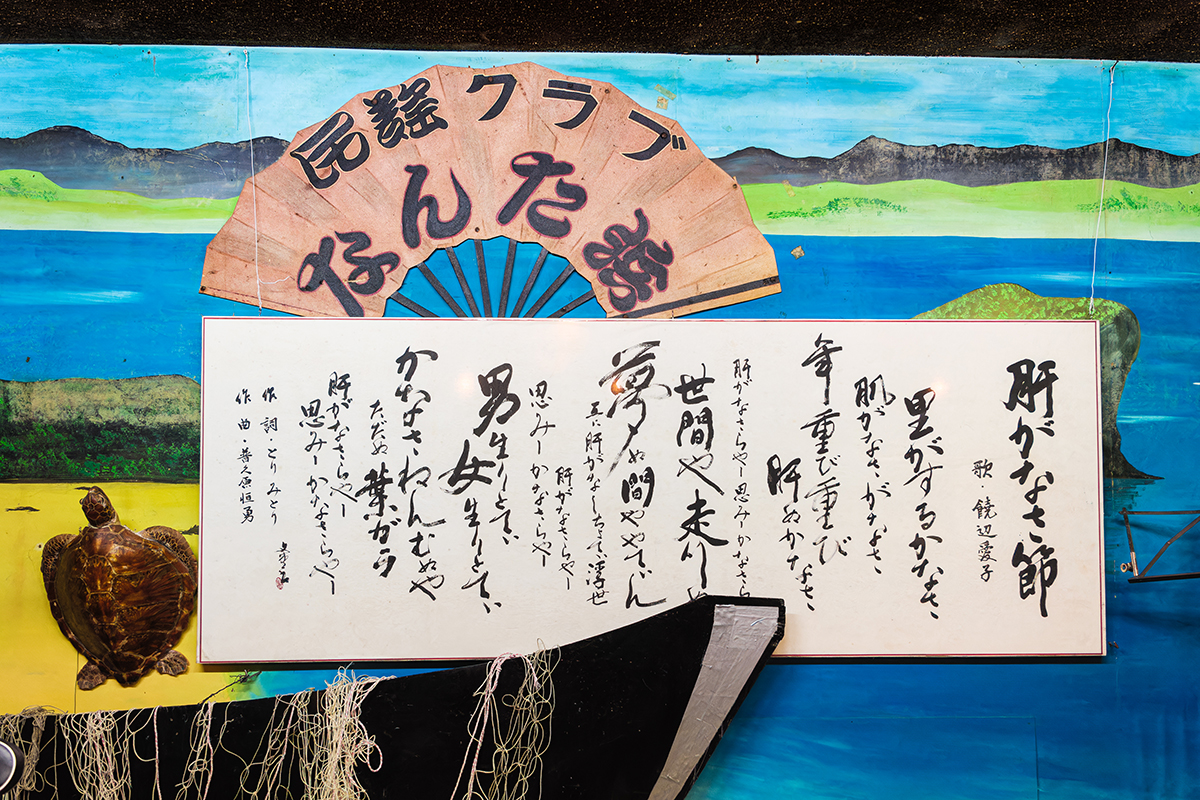 民謡クラブ
なんた浜
肝がなさ節
歌・饒辺愛子
里がするかなさ
肌がなさがなさ
年重び重び
肝ぬかなさ
肝がなさらやー思みーかなさら
世間や走りー
夢ぬ間やてん
互に肝がなーしちょてぃ浮世
肝がなさらやー
思みーかなさらやー
男生りとてぃ
女生りとてぃ
かなさねんむぬや
ただぬ葉ガラ
肝がなさらやー
思みーかなさらやー
作詞・とりみとり
作曲・普久原恒勇